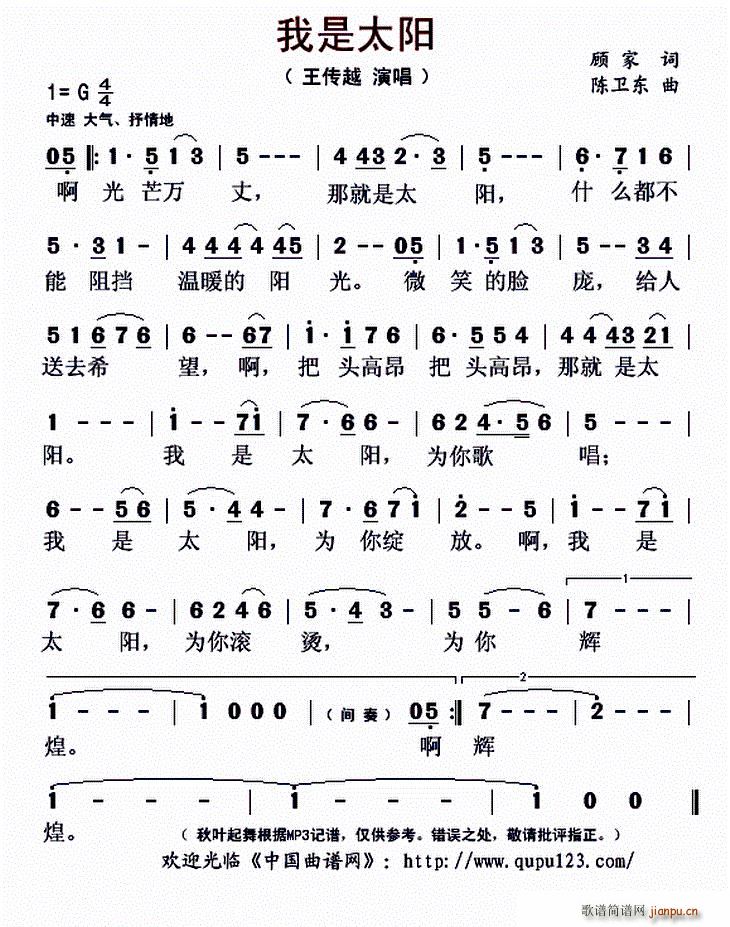 我是太阳
（ 王传越 演唱 ）
顾 家 词
1= G 4/4
陈卫东 曲
中速 大气、抒情地
05 ‖: 1· 5 1 3 | 5 - - - | 4 43 2· 3 | 5 - - - | 6· 7 1 6 |
啊 光 芒万 丈， 那就是太 阳， 什 么都不
5 · 31 - | 4 4 4 4 45 | 2 - - 05 | 1· 5 1 3 | 5 - - 34 |
能 阻挡 温暖的 阳 光。 微 笑 的脸 庞，给人
5 1 6 7 6 | 6 - - 67 | i · i 7 6 | 6· 5 5 4 | 4 4 43 21 |
送去希 望， 啊， 把 头高昂 把 头高昂，那就 是太
1 - - - | i - - 7i | 7 · 6 6 - | 6 2 4 · 5 6 | 5 - - - |
阳。 我 是 太 阳， 为你歌 唱；
6 - - 56 | 5 · 4 4 - | 7 · 6 7 i | 2 - - 5 | i - - 7i |
我 是 太 阳， 为 你绽 放。 啊，我 是
7 · 6 6 - | 6 2 4 6 | 5 · 4 3 - | 5 5 - 6 | 7 - - - |
太 阳， 为你滚 烫， 为 你 辉
1 - - - | 1 0 0 0 | （ 间 奏 ） 05 :‖ 7 - - - | 2 - - - |
煌。 啊 辉
1 - - - | 1 - - - | 1 0 0 ‖
煌。 （ 秋叶起舞根据MP3记谱，仅供参考。错误之处，敬请批评指正。）
欢迎光临《中国曲谱网》：http://www.qupu123.com/
歌谱简谱网 jianpu.cn